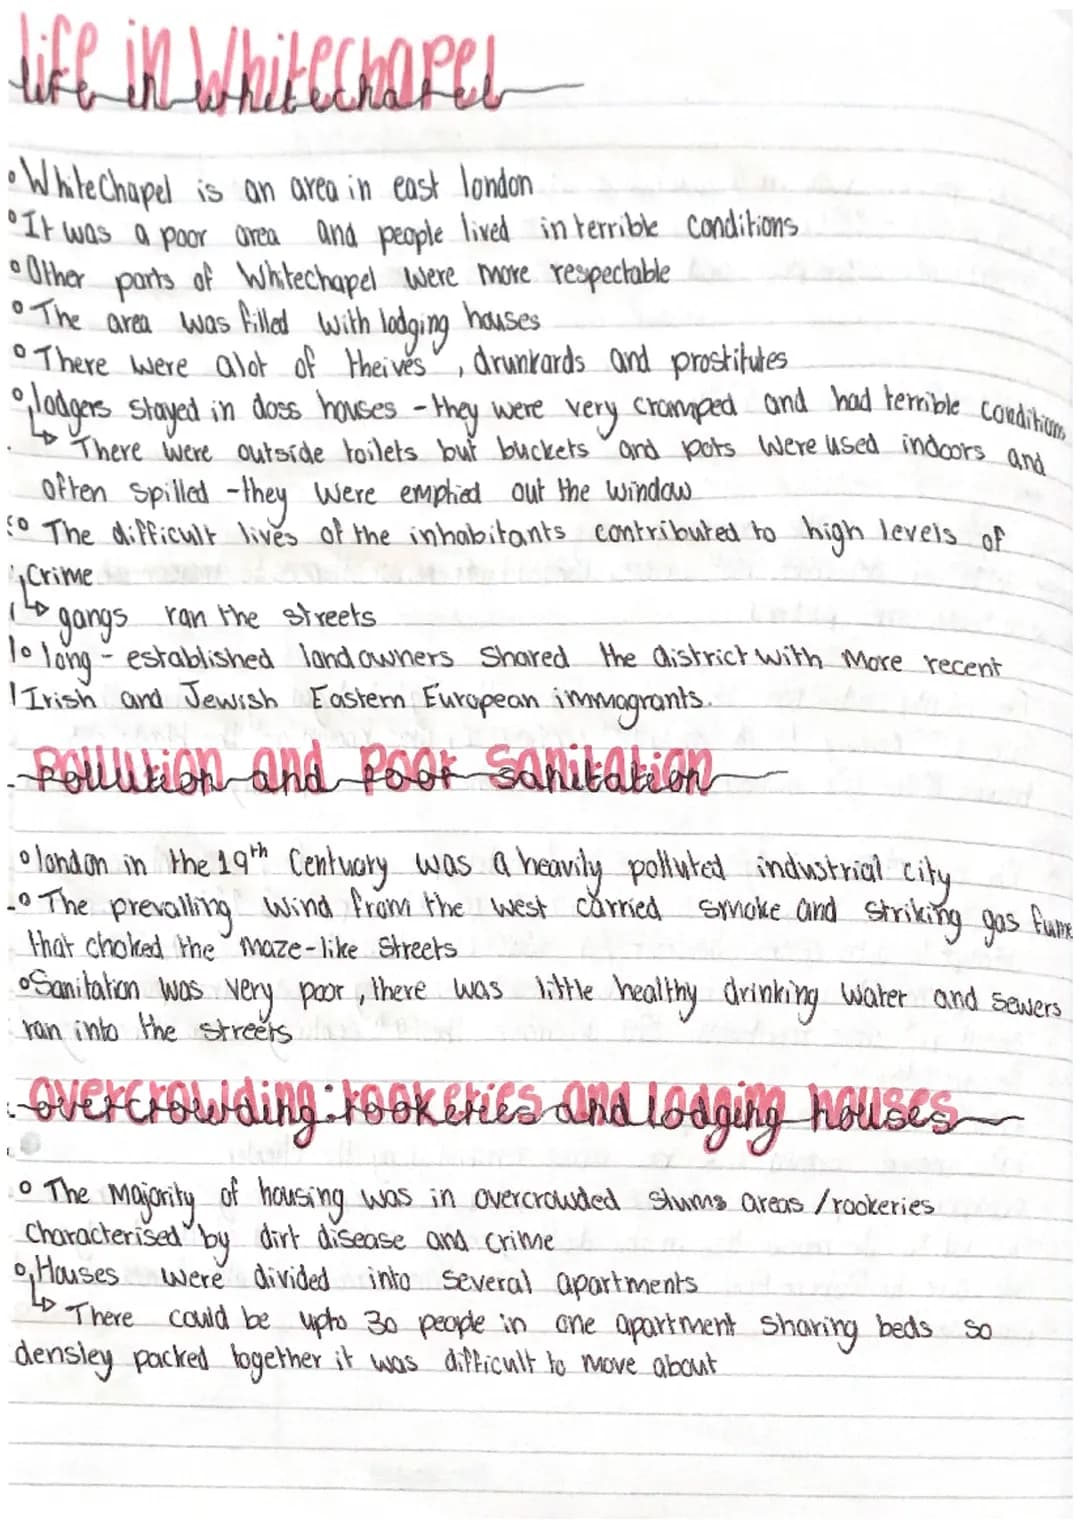 life in Whitechapel
• WhiteChapel is an area in east london
• It was a poor area and people lived in terrible conditions
• Other parts of Whitechapel were more respectable
• The area was filled with lodging houses
• There were alot of theives, drunkards and prostitutes
• lodgers stayed in doss houses - they were very cramped and had terrible conditions
↳ There were outside toilets but buckets and pots were used indoors and
often spilled - they were emptied out the window
• The difficult lives of the inhabitants contributed to high levels of
Crime
↳ gangs ran the streets
• long - established landowners shared the district with more recent
Irish and Jewish Eastern European immagrants.
Pollution and Poor Sanitation
• london in the 19th Centuary was a heavily polluted industrial city
• The prevalling wind from the west carried smoke and striking gas fume
that choked the maze-like streets
• Sanitation was very poor, there was little healthy drinking water and sewers
ran into the streets
overcrowding: rookeries and lodging houses
• The Majority of housing was in overcrowded slums areas / rookeries
Characterised by dirt disease and crime
• Houses were divided into several apartments
↳ There could be upto 30 people in one apartment sharing beds so
densley packed together it was difficult to move about